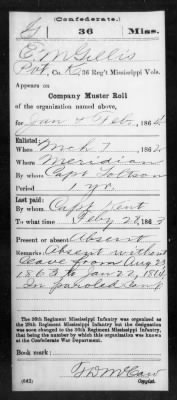 (Confederate.)
G 36 Miss.
E. McGillis
Pvt, Co. K, 36 Reg't Mississippi Vols.
Appears on
Company Muster Roll
of the organization named above,
for Jan & Feb, 1864
Enlisted:
When Mch 7, 1862
Where Meridian
By whom Capt
Period 1 yr.
Last paid:
By whom Capt Kent
To what time Feby 28, 1863
Present or absent Absent
Remarks: Absent without
leave from Aug 23
1863 to Jan 22, 1864
In paroled Camp
The 36th Regiment Mississippi Infantry was organized as
the 28th Regiment Mississippi Infantry but the designation
was soon changed to the 36th Regiment Mississippi Infantry,
that being the number by which this organization was known
at the Confederate War Department.
Book mark:
(642)
G D McCaw
Copyist.